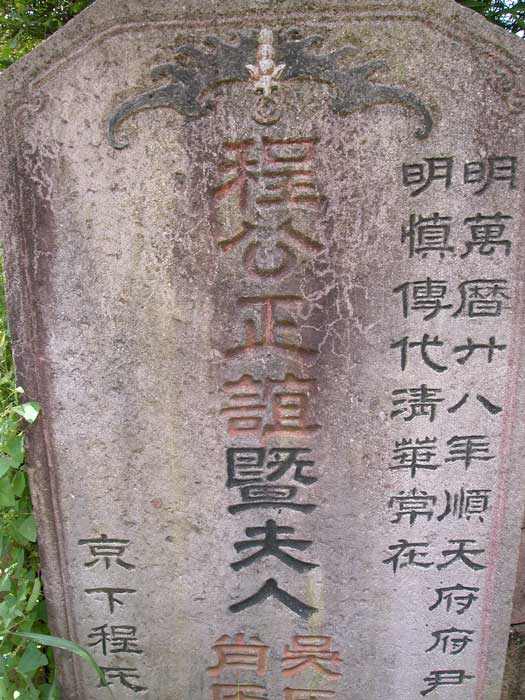 明萬曆廿八年順天府府尹
明慎傳代清華常在
程公正誼暨夫人
吴
肖
京下程氏